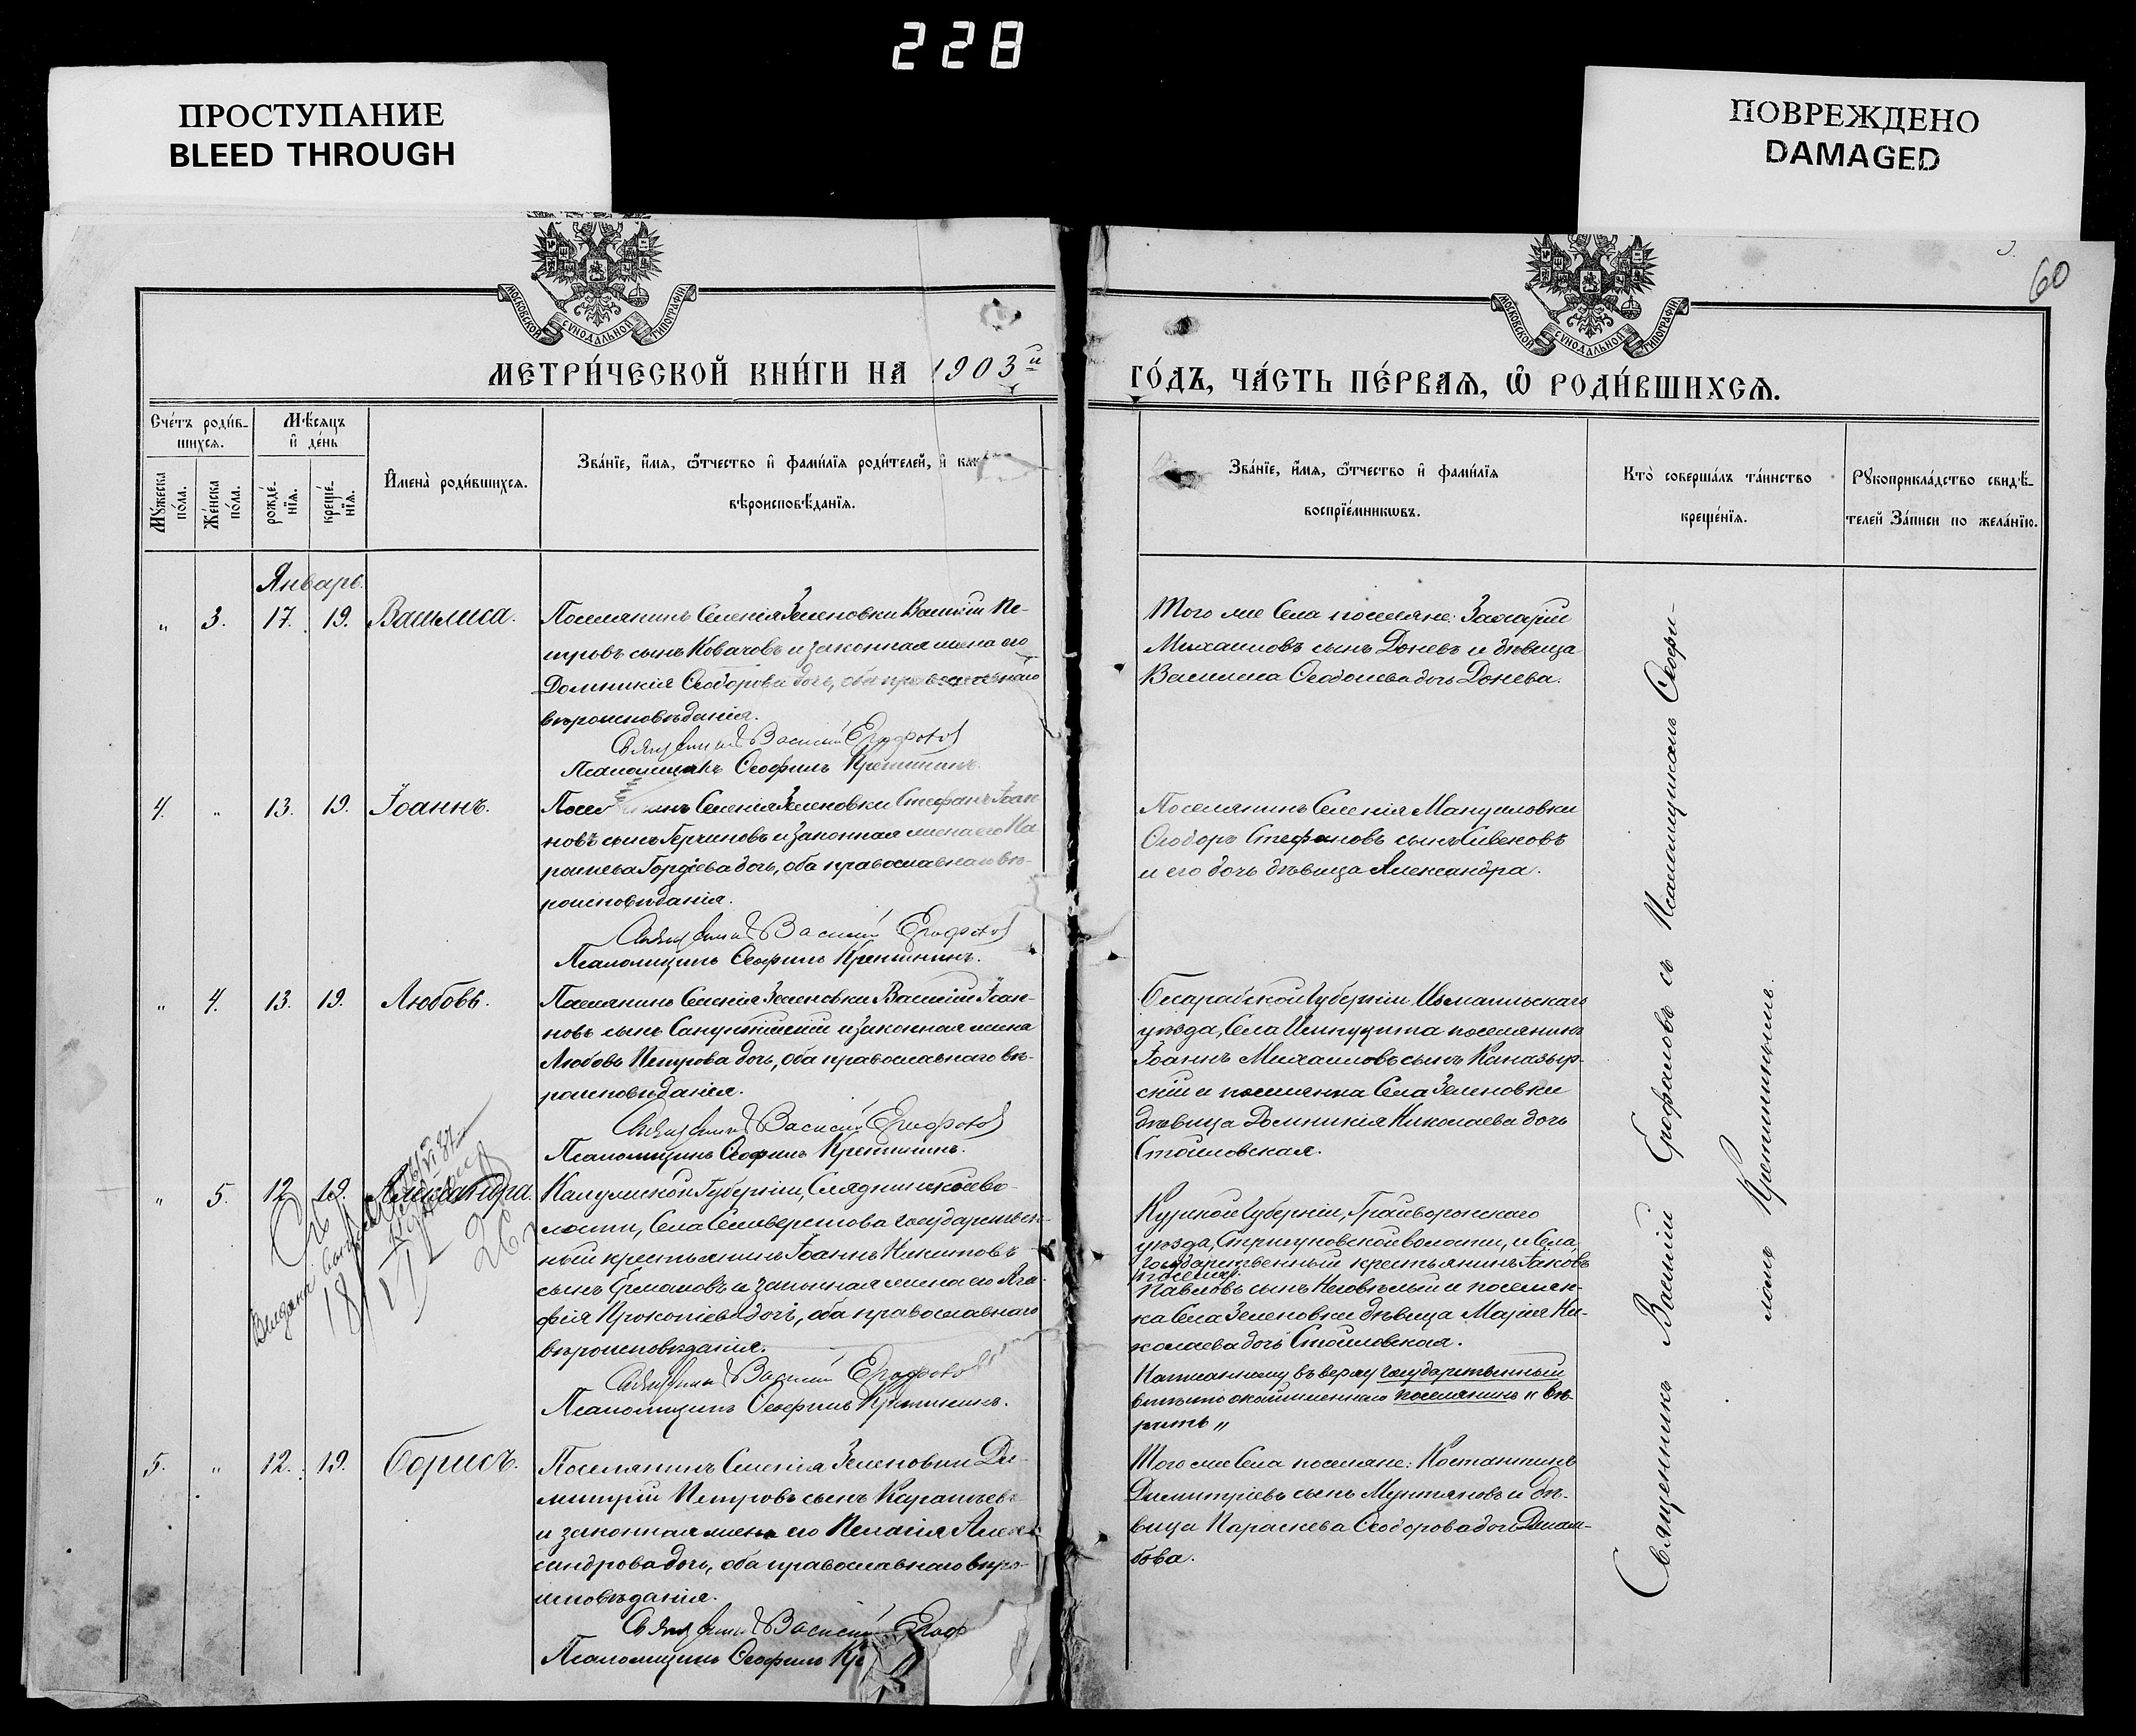 228
ПРОСТУПАНИЕ
BLEED THROUGH
ПОВРЕЖДЕНО
DAMAGED
60
МОСКОВСКОЙ СѴНОДАЛЬНОЙ ТИПОГРАФІИ
МОСКОВСКОЙ СѴНОДАЛЬНОЙ ТИПОГРАФІИ
МЕТРИ́ЧЕСКОЙ КНИ́ГИ НА 1903й
ГО́ДЪ, ЧА́СТЬ ПЕ́РВАѦ, Ѽ РОДИ́ВШИХСѦ.
Сче́тъ роди́в-
шихсѧ.
Мѣ́сѧцъ
и҆ де́нь
Мꙋ́жеска по́ла.
Же́нска по́ла.
рожде́-
нїѧ.
креще́-
нїѧ.
И҆мена̀ роди́вшихсѧ.
Зва́нїе, и҆́мѧ, ѻ҆́тчество и҆ фами́лїѧ роди́телей, и҆
вѣроисповѣ́данїѧ.
Зва́нїе, и҆́мѧ, ѻ҆́тчество и҆ фами́лїѧ
воспрїе́мникѡвъ.
Кто̀ соверша́лъ та́инство
креще́нїѧ.
Рꙋкоприкла́дство свидѣ́-
телей За́писи по жела́нїю.
Январь.
„ 3. 17. 19. Василиса.
Поселянинъ Селенія Зеленовки Василій Пе-
тровъ сынъ Ковачовъ и законная жена его
Домникія Ѳеодорова дочь, оба православнаго
вѣроисповѣданія.
Священникъ Василій Ерофаловъ
Псаломщикъ Ѳеофилъ Кретининъ.
Того же Села поселяне: Захарій
Михаиловъ сынъ Доневъ и дѣвица
Василиса Ѳеодосіева дочь Донева.
4. „ 13. 19. Іоаннъ.
Селенія Зеленовки Стефанъ Іоан
новъ сынъ Герчиновъ и законная жена его Па
раскева Гордіева дочь, оба православнаго вѣ-
роисповѣданія.
Священникъ Василій Ерофаловъ
Псаломщикъ Ѳеофилъ Кретининъ.
Поселянинъ Селенія Мануиловки
Ѳеодоръ Стефановъ сынъ Сивеновъ
и его дочь дѣвица Александра.
„ 4. 13. 19. Любовь.
Поселянинъ Селенія Зеленовки Василій Іоан-
новъ сынъ и законная жена
Любовь Петрова дочь, оба православнаго вѣ-
роисповѣданія.
Священникъ Василій Ерофаловъ
Псаломщикъ Ѳеофилъ Кретининъ.
Бесарабской Губерніи, Измаильскаго
уѣзда, Села Импуцита поселянинъ
Іоаннъ Михаиловъ сынъ Каназыр-
скій и поселянка Села Зеленовки
дѣвица Домникія Николаева дочь
Стоиловская.
„ 5. 12. 19. Александра.
Калужской Губерніи, во-
лости, Села Селиверстова государствен-
ный крестьянинъ Іоаннъ Никитовъ
сынъ Ермаковъ и законная жена его Ага-
фія Прокопіева дочь, оба православнаго
вѣроисповѣданія.
Священникъ Василій Ерофаловъ
Псаломщикъ Ѳеофилъ Кретининъ.
Выдана
Курской Губерніи, Грайворонскаго
уѣзда, Стригуновской волости, и Села,
государственный крестьянинъ Іаковъ
поселян.
Павловъ сынъ и поселян-
ка Села Зеленовки дѣвица Марія Ни-
колаева дочь Стоиловская.
Написанному въ верху государственный
поселянинъ „ вѣ-
рить „
5. „ 12. 19. Борисъ.
Поселянинъ Селенія Зеленовки Ди-
митрій Петровъ сынъ Карапчевъ
и законная жена его Пелагія Алек
сандрова дочь, оба православнаго вѣро-
исповѣданія.
Священникъ Василій Ероф
Псаломщикъ Ѳеофилъ Кре
Того же Села поселяне: Костантинъ
Димитріевъ сынъ Мунтяновъ и дѣ-
вица Параскева Ѳеодорова дочь Джам-
бова.
Священникъ Василій Ерофаловъ съ Псаломщикомъ Ѳеофи-
ломъ Кретининымъ.